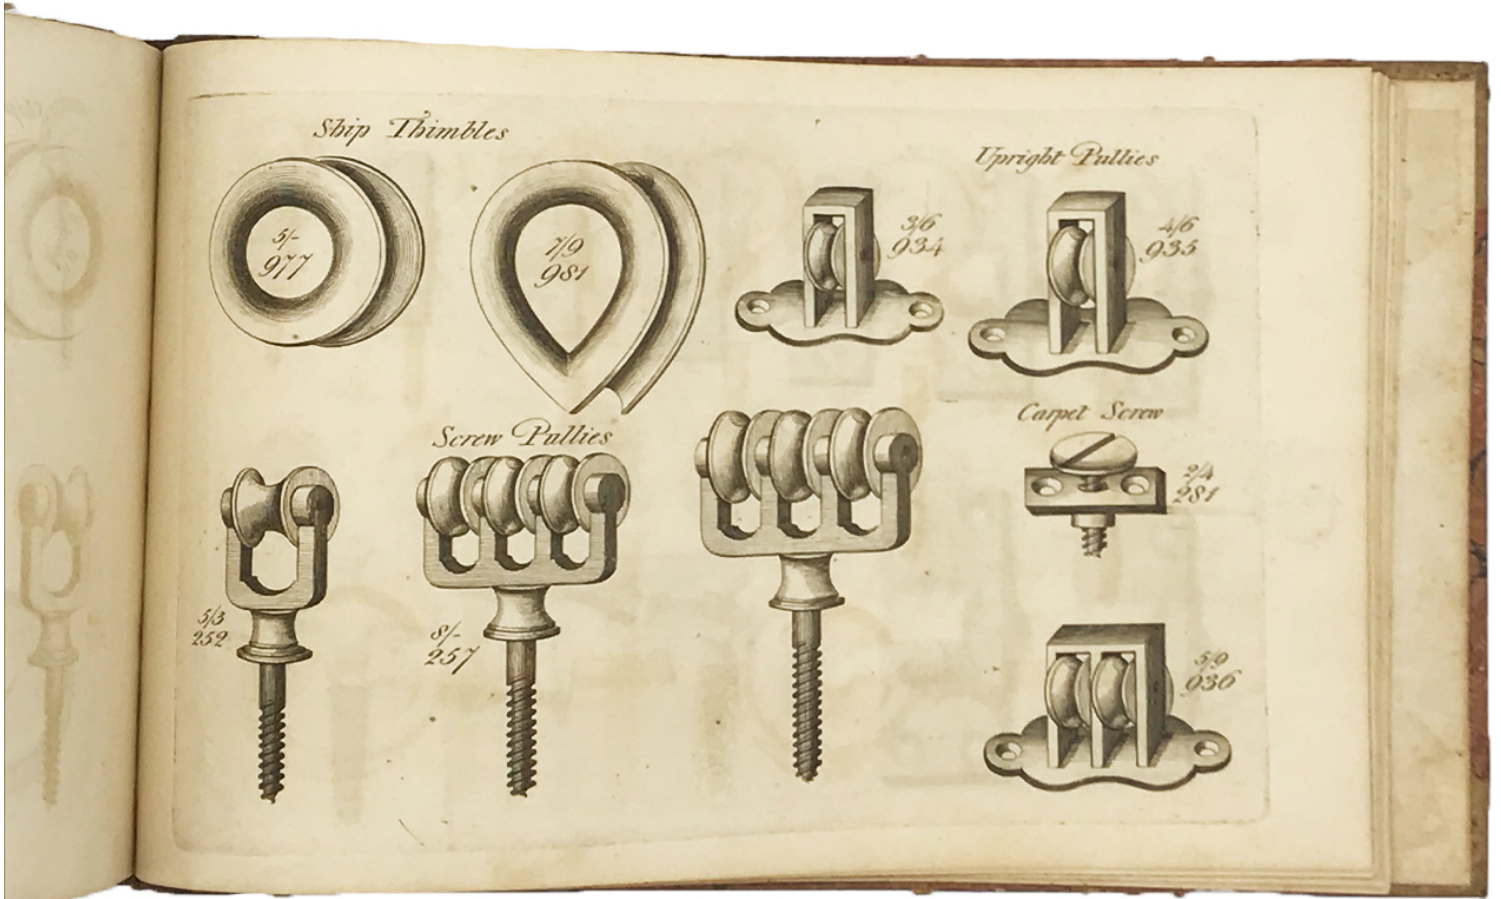 Ship Thimbles
5/-
977
7/9
981
3/6
934
Upright Pullies
4/6
935
Screw Pullies
5/3
252
8/-
257
Carpet Screw
2/4
281
5/9
936